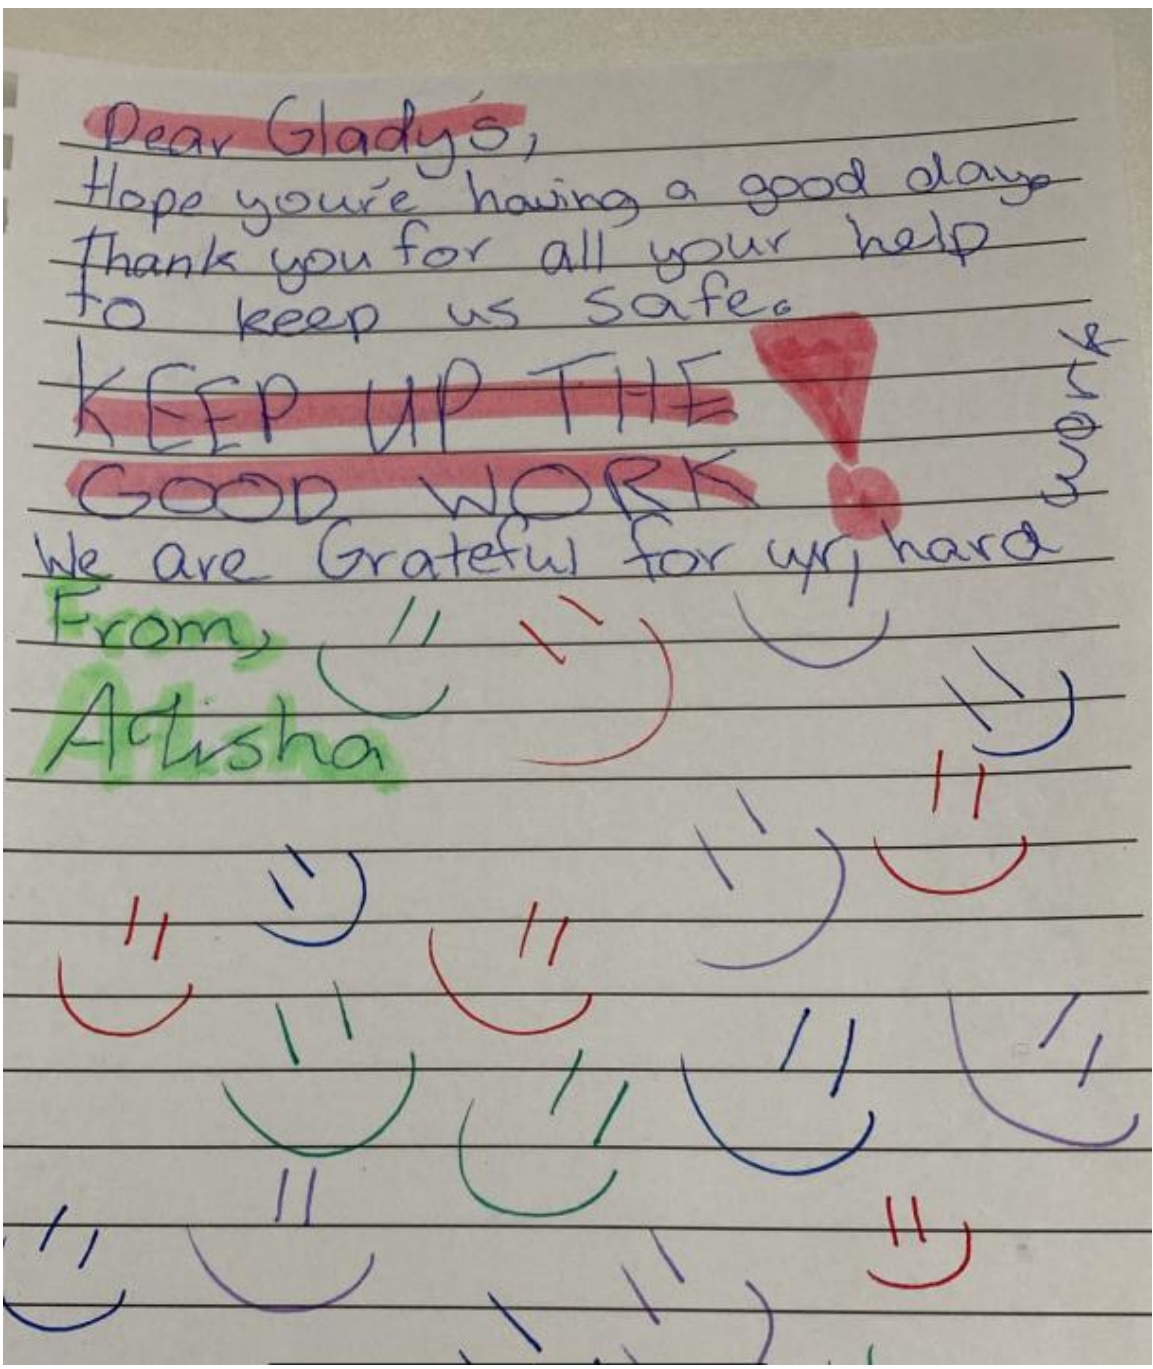 Dear Glady's,
Hope you're having a good day.
Thank you for all your help
to keep us safe.
KEEP UP THE
GOOD WORK!
We are Grateful for ur, hard
work
From,